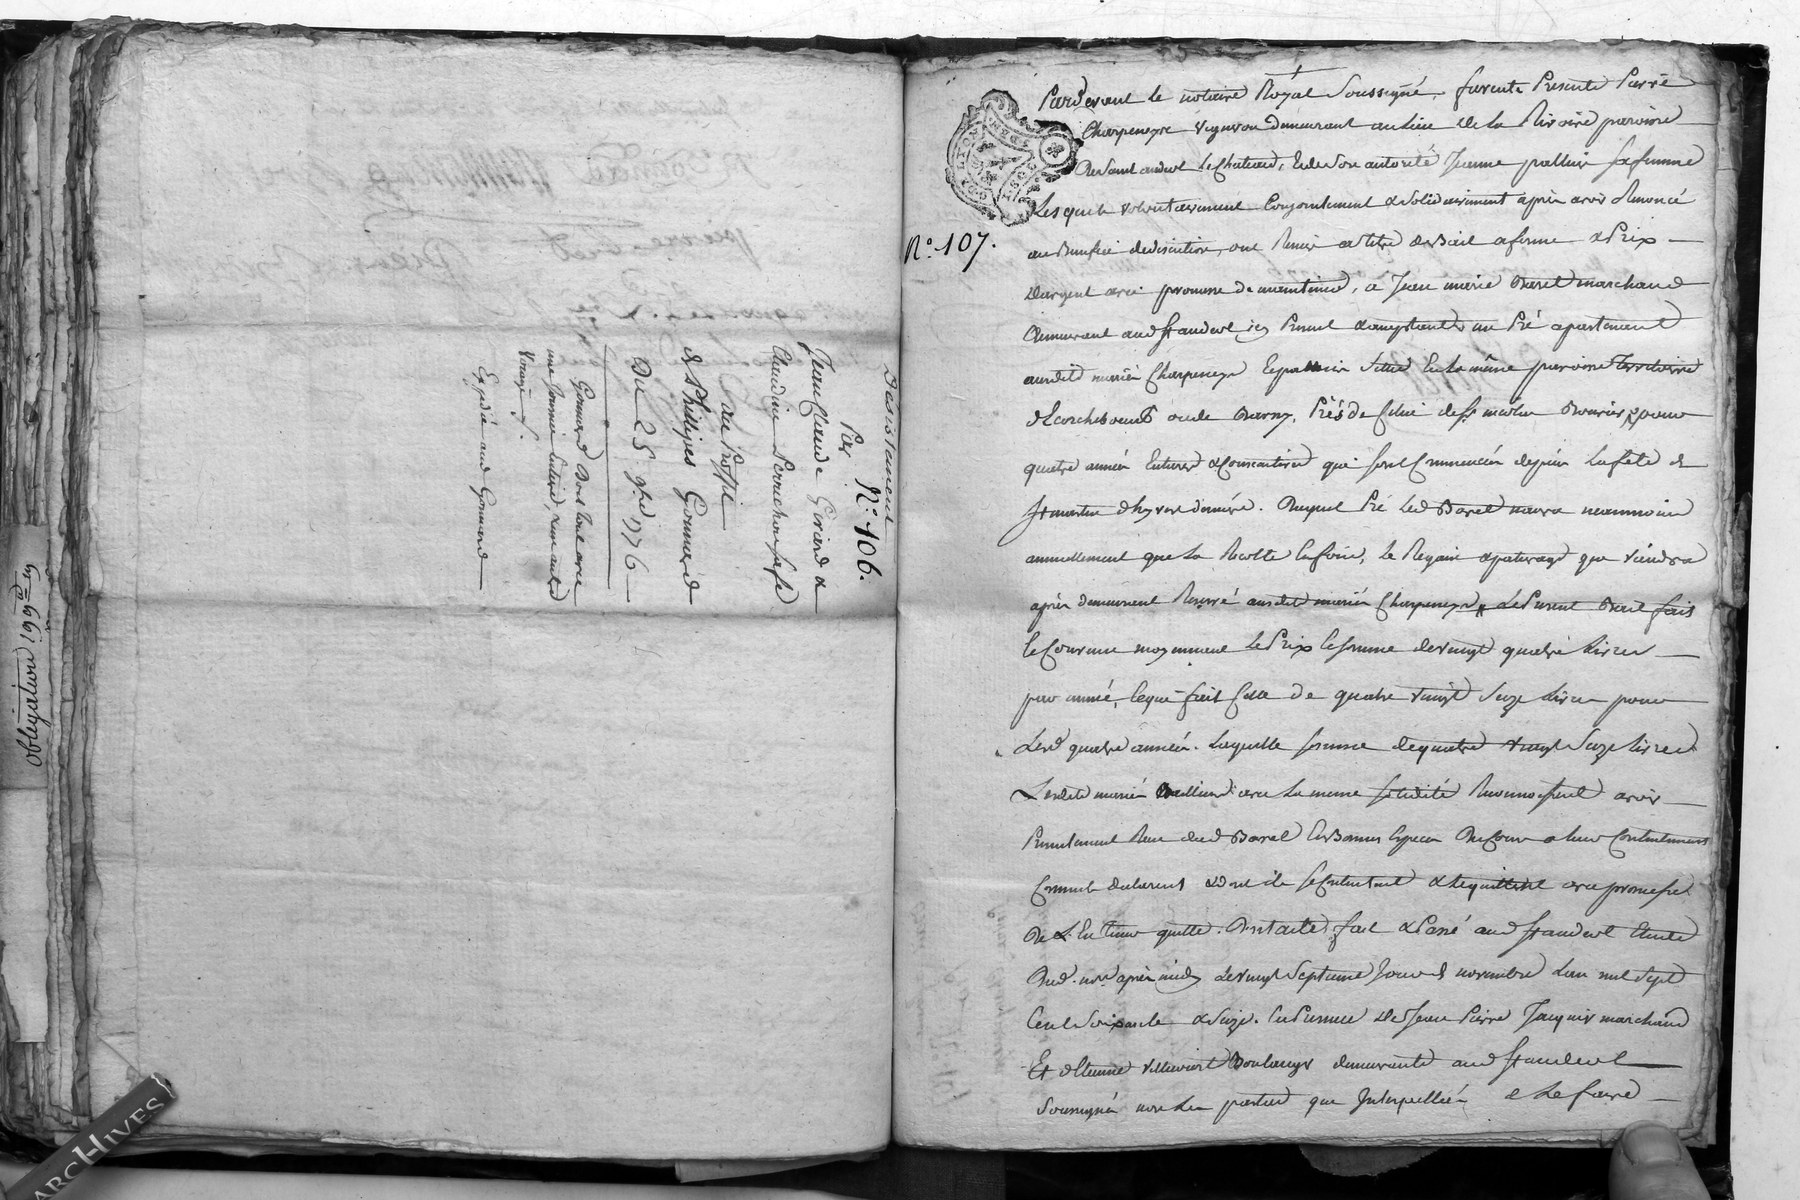 Désistement
N.° 106.
Par
Jean Claude Girard &
Claudine Perrichon sa fe
au Proffit
de Philippes Gonnard
Du 25 9bre 1776
Gonnard Doit tout avec
une journée entiere, pour autre
voiage
Expédié aud Gonnard
Obligation 1991
Pardevant le notaire Royal Soussigné, furents Presents Pierre
Charpeneyre vigneron demeurant au lieu de la Rivoire paroisse
De Saint andeol le Chateau, & de son autorité Jeanne pallier sa femme
Lesquels volontairement Conjointement & solidairement après avoir Renoncé
N.° 107.
au Benefice de discution, ont Remis a titre de Bail a ferme & Prix
d'argent avec promesse de maintenir, a Jean marie Barel marchand
demeurant aud St andeol icy Present & acceptant un Pré apartenant
auxdits mariés Charpeneyre & pallier Situé En la même paroisse territoire
de Larchebaud oude Barny, Près de Celui de Sr marlin pour
quatre années Entieres & Consecutives qui sont Commencées depuis la fete de
St martin d'hyver dernière. Duquel Pré Led Barel naura neanmoins
annuellement que la Recolte En foin, le Regain & paturage qui viendra
après demeurent Reservé auxdits mariés Charpeneyre, Le Present Bail fait
& Convenu moyennant Le Prix & somme de vingt quatre Livres
par année, Ce qui fait Celle de quatre vingt Seize Livres pour
Lesd quatre années. Laquelle somme de quatre vingt Seize Livres
Lesdits mariés Bailleurs avec la meme solidité Reconnoissent avoir
Presentement Reçu dud Barel En Bonnes Especes De Cour a leur Contentement
Comme declarent & dont ils se Contentent & Le quittent avec promesse
De L'En tenir quitte. Dont acte, fait & Passé aud St andeol Etude
Dud. nore après midy Le vingt Septieme Jour de novembre L'an mil Sept
Cent Soixante & Seize. En Presence De Jean Pierre Jacquier marchand
Et Etienne Villevieil Boulanger demeurants aud St andeol
Soussignés non Les parties qui Interpellées de Le faire
ARCHIVES